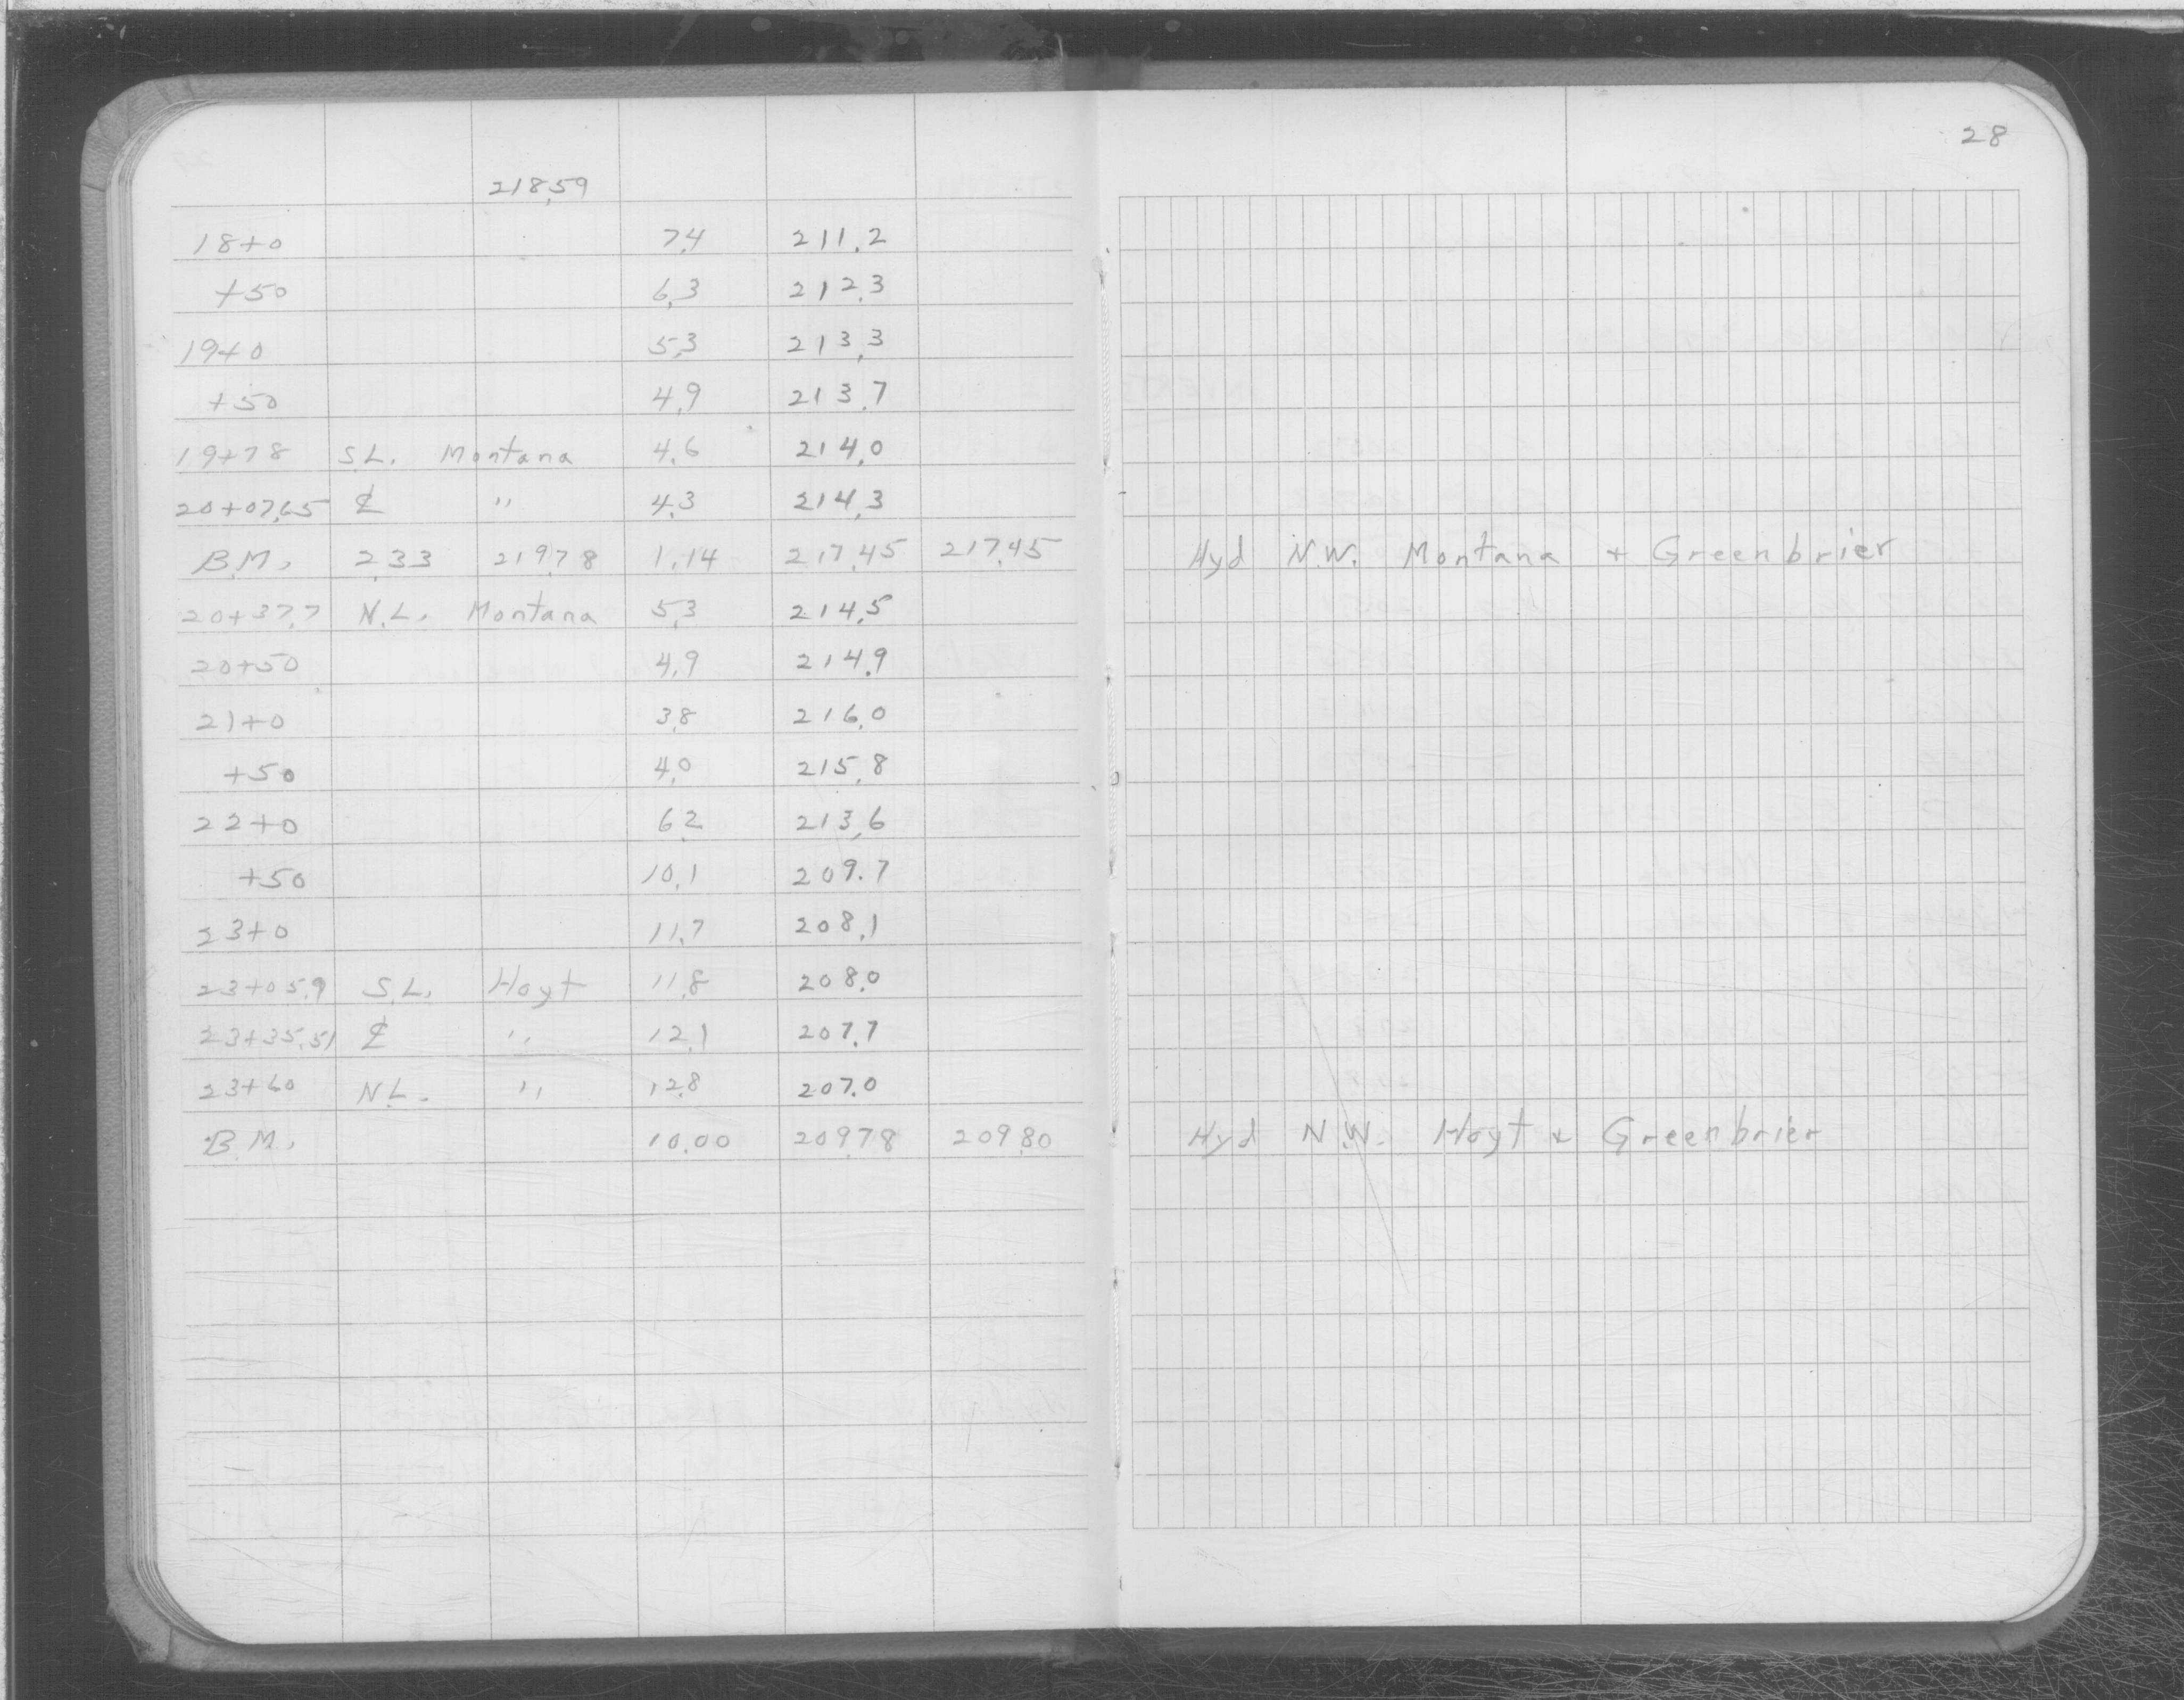 28
218.59
18+0 7.4 211.2
+50 6.3 212.3
19+0 5.3 213.3
+50 4.9 213.7
19+78 S.L. Montana 4.6 214.0
20+07.65 ℄ " 4.3 214.3
B.M. 2.33 219.78 1.14 217.45 217.45 Hyd N.W. Montana + Greenbrier
20+37.7 N.L. Montana 5.3 214.5
20+50 4.9 214.9
21+0 3.8 216.0
+50 4.0 215.8
22+0 6.2 213.6
+50 10.1 209.7
23+0 11.7 208.1
23+05.9 S.L. Hoyt 11.8 208.0
23+35.51 ℄ " 12.1 207.7
23+60 N.L. " 12.8 207.0
B.M. 10.00 209.78 209.80 Hyd N.W. Hoyt + Greenbrier